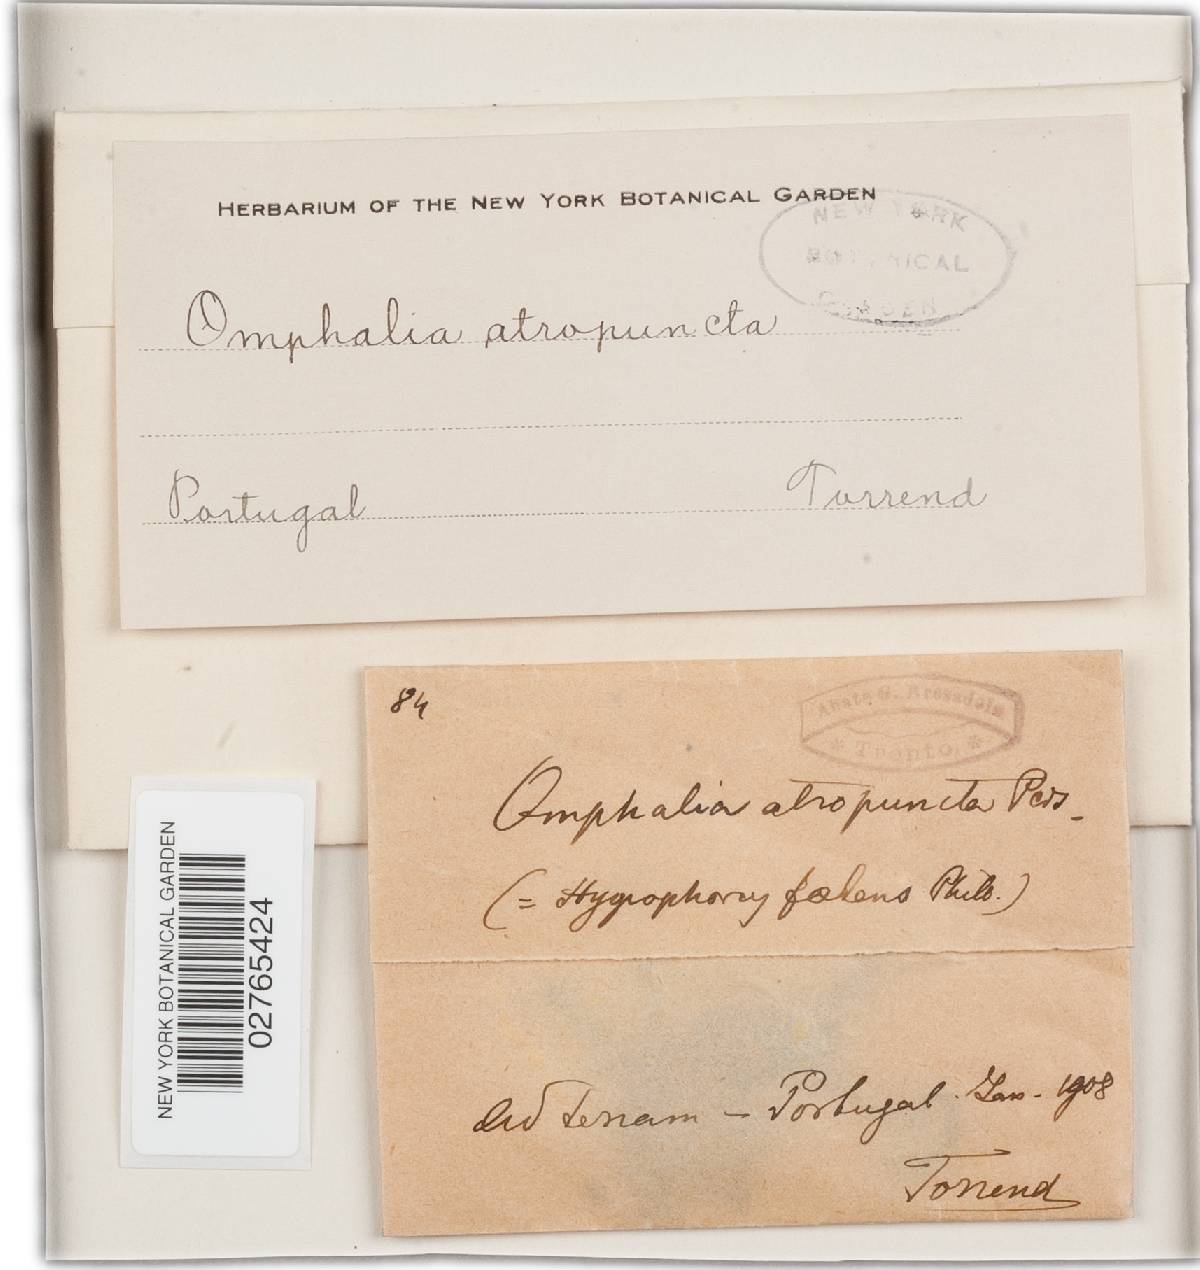 HERBARIUM OF THE NEW YORK BOTANICAL GARDEN
NEW YORK
BOTANICAL
GARDEN
Omphalia atropuncta
Portugal
Torrend
84
Abate G. Bresadola
* Trento *
Omphalia atropuncta Pers.
(= Hygrophorus fœtens Phill.)
Ad terram – Portugal. Jan. 1908
Torrend
NEW YORK BOTANICAL GARDEN
02765424